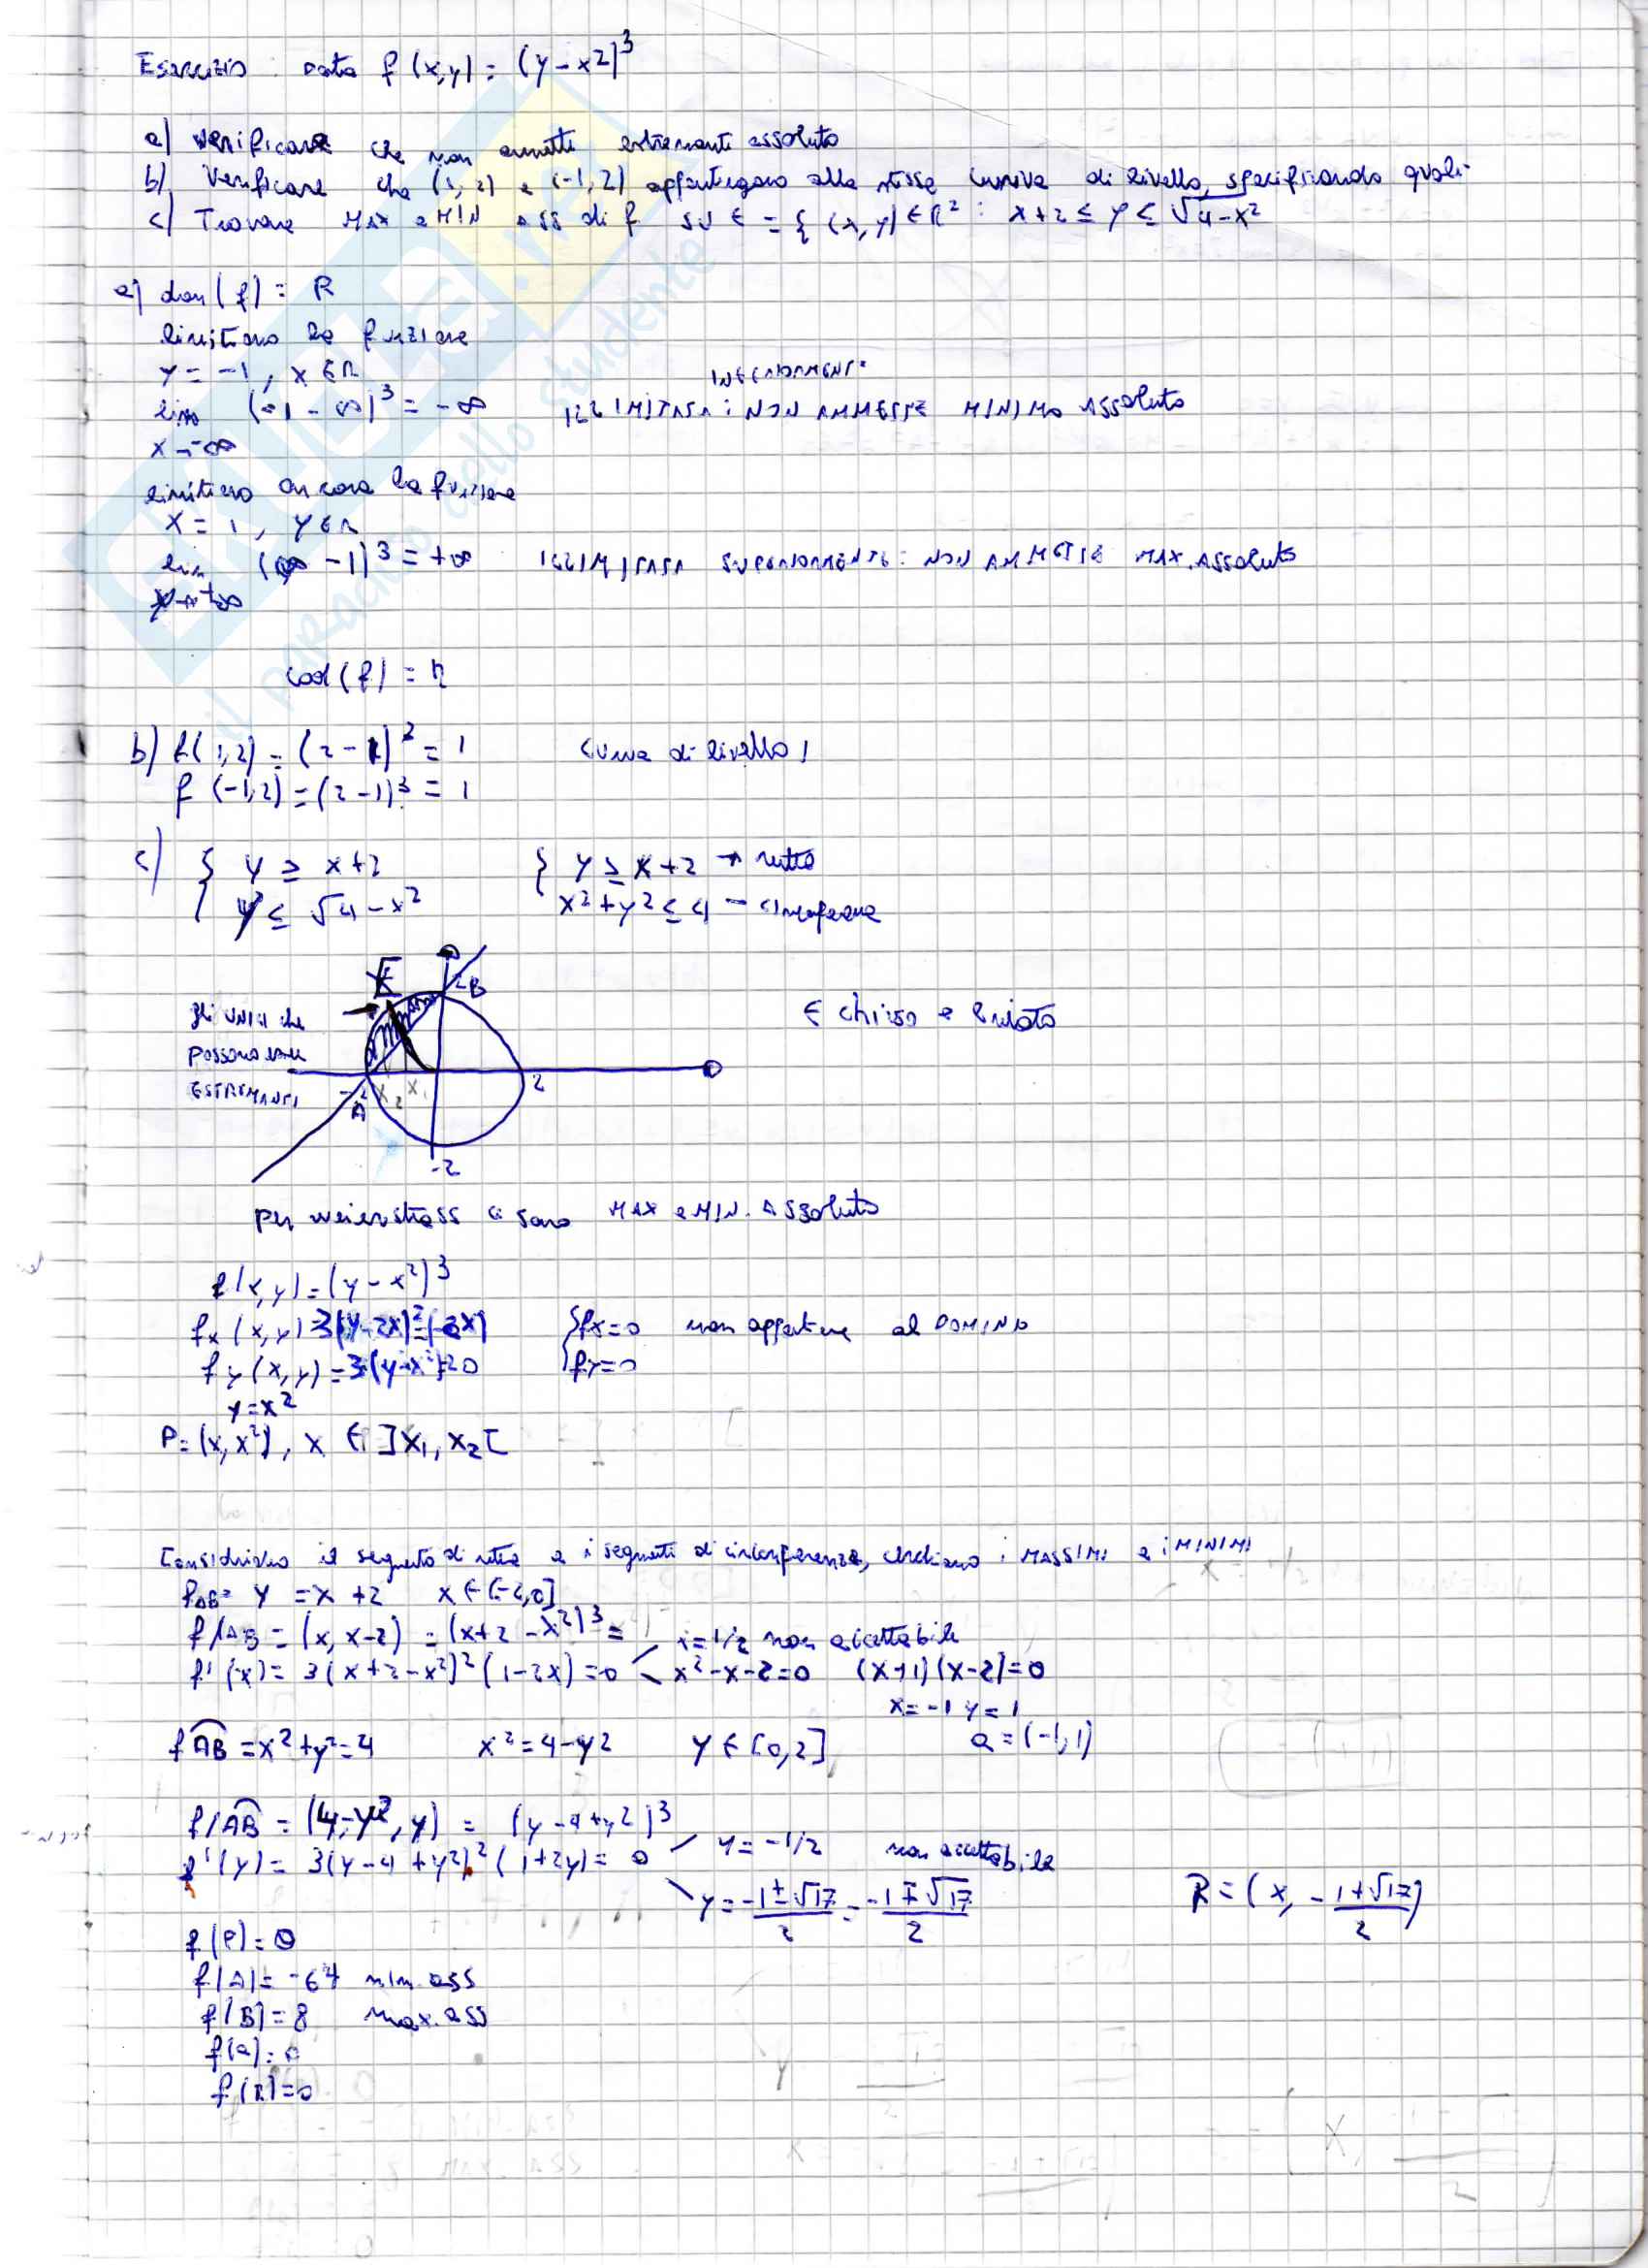 Esercizio: Data f(x,y) = (y-x2)³
a) verificare che non ammetti estremanti assoluto
b) Verificare che (1,2) e (-1,2) appartengano alla stessa curva di livello, specificando quali
c) Trovare MAX e MIN ASS di f su E = { (x,y) ∈ R² : x+2 ≤ y ≤ √4-x²
a) dom(f) = R
limitiamo la funzione
y = -1, x ∈ R
INFERIORMENTE
lim (-1-∞)³ = -∞ ILLIMITATA: NON AMMETTE MINIMO ASSOLUTO
x→-∞
limitiamo ancora la funzione
x = 1, y ∈ R
lim (∞-1)³ = +∞ ILLIMITATA SUPERIORMENTE: NON AMMETTE MAX. ASSOLUTO
y→+∞
SKUOLA
il paradiso dello studente
cod(f) = R
b) f(1,2) = (2-1)³ = 1 curva di livello 1
f(-1,2) = (2-1)³ = 1
c) { y ≥ x+2 { y ≥ x+2 → retta
y ≤ √4-x² x²+y² ≤ 4 – circonferenza
E 2 B
gli UNICI che E chiuso e limitato
possono essere
ESTREMANTI -2 A x2 x1 2
-2
per weierstrass ci sono MAX e MIN. ASSOLUTO
f(x,y) = (y-x²)³
fx(x,y) = 3(y-2x)²=(-2x) { fx=0 non appartiene al DOMINIO
fy(x,y) = 3(y-x²)²=0 fy=0
y=x²
P=(x,x²), x ∈ ]x1,x2[
Consideriamo il segmento di retta e i segmenti di circonferenza, cerchiamo i MASSIMI e i MINIMI
fAB= y = x+2 x∈[-2,0]
f/AB = (x, x-2) = (x+2-x²)³ = x=1/2 non accettabile
f'(x) = 3(x+2-x²)²(1-2x)=0 x²-x-2=0 (x+1)(x-2)=0
x=-1 y=1
f AB = x²+y²=4 x²=4-y2 y∈[0,2] Q=(-1,1)
f/AB = (4-y², y) = (y-4+y2)³
f'(y) = 3(y-4+y²)²(1+2y)=0 y=-1/2 non accettabile
y = -1±√17/2 = -1∓√17/2 R=(x, -1+√17/2)
f(P)=0
f(A)=-64 min.ass
f(B)=8 max.ass
f(Q)=0
f(R)=0